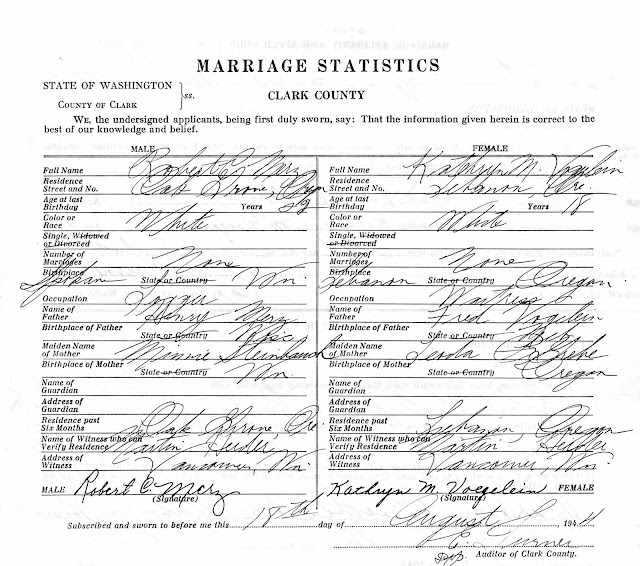 MARRIAGE STATISTICS
STATE OF WASHINGTON
COUNTY OF CLARK
ss.
CLARK COUNTY
WE, the undersigned applicants, being first duly sworn, say: That the information given herein is correct to the
best of our knowledge and belief.
MALE
Full Name Robert C. Merz
Residence
Street and No. Oak Grove, Oregon
Age at last
Birthday Years
Color or
Race White
Single, Widowed
or Divorced
Number of
Marriages None
Birthplace
Spokane State or Country Wn.
Occupation Logger
Name of
Father Henry Merz
Birthplace of Father
State or Country
Maiden Name
of Mother Minnie
Birthplace of Mother
State or Country Wn.
Name of
Guardian
Address of
Guardian
Residence past
Six Months Ore
Name of Witness who can
Verify Residence Martin
Address of
Witness Vancouver, Wn.
MALE Robert C. Merz
(Signature)
FEMALE
Full Name Kathryn M. Vogelein
Residence
Street and No. Lebanon, Ore.
Age at last
Birthday Years 18
Color or
Race White
Single, Widowed
or Divorced
Number of
Marriages None
Birthplace
Lebanon State or Country Oregon
Occupation Waitress
Name of
Father Fred Vogelein
Birthplace of Father
State or Country Neb.
Maiden Name
of Mother Leoda
Birthplace of Mother
State or Country Oregon
Name of
Guardian
Address of
Guardian
Residence past
Six Months Lebanon Oregon
Name of Witness who can
Verify Residence Martin
Address of
Witness Vancouver, Wn.
Kathryn M. Voegelein FEMALE
(Signature)
Subscribed and sworn to before me this 18th day of August 1941
Turner
Dep. Auditor of Clark County.